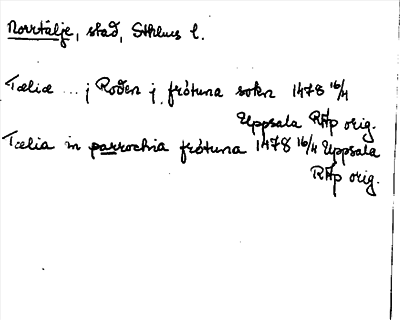 Norrtälje, stad, Sthlms l.
Tælie ... j Roden j frötuna sokn 1478 16/4
Uppsala RAp orig.
Tælia in parrochia frötuna 1478 16/4 Uppsala
RAp orig.